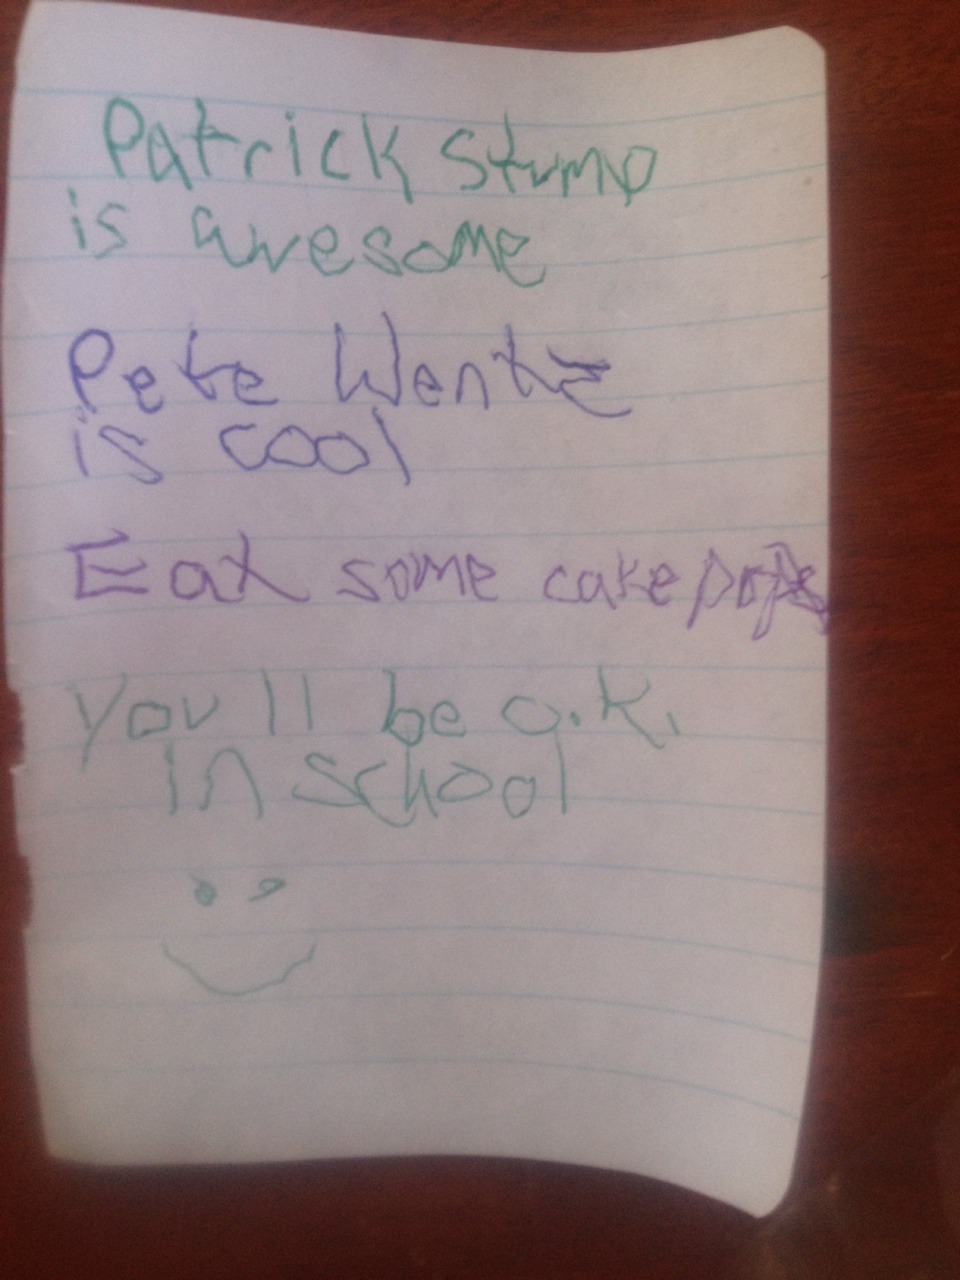 Patrick Stump
is awesome
Pete Wentz
is cool
Eat some cake pops
You'll be o.k.
in school